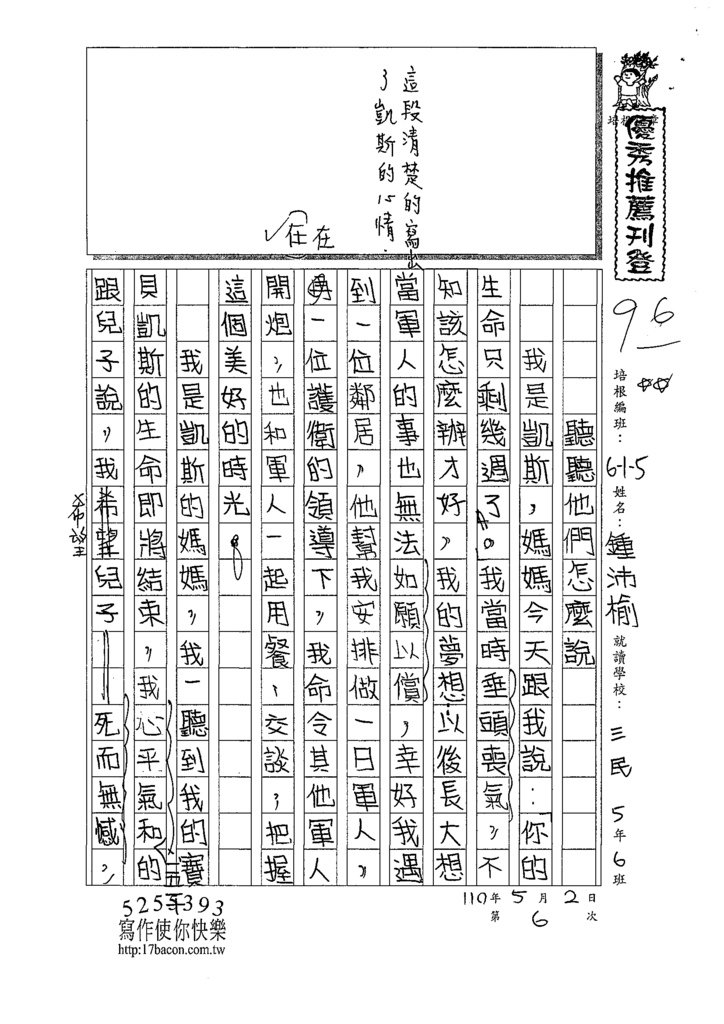 優秀推薦刊登
96
培根編班：6-1-5
姓名：鍾沛榆
就讀學校：三民 5年6班
聽聽他們怎麼說
我是凱斯，媽媽今天跟我說：「你的
生命只剩幾週了。」我當時垂頭喪氣，不
知該怎麼辦才好，我的夢想：以後長大想
當軍人的事也無法如願以償，幸好我遇
到一位鄰居，他幫我安排做一日軍人，
一位護衛的領導下，我命令其他軍人
開炮，也和軍人一起用餐、交談，把握
這個美好的時光。
我是凱斯的媽媽，我一聽到我的寶
貝凱斯的生命即將結束，我心平氣和的
跟兒子說，我希望兒子死而無憾，
這段清楚的寫出
了凱斯的心情.
在
希望
110年5月2日
第6次
寫作使你快樂
http:17bacon.com.tw